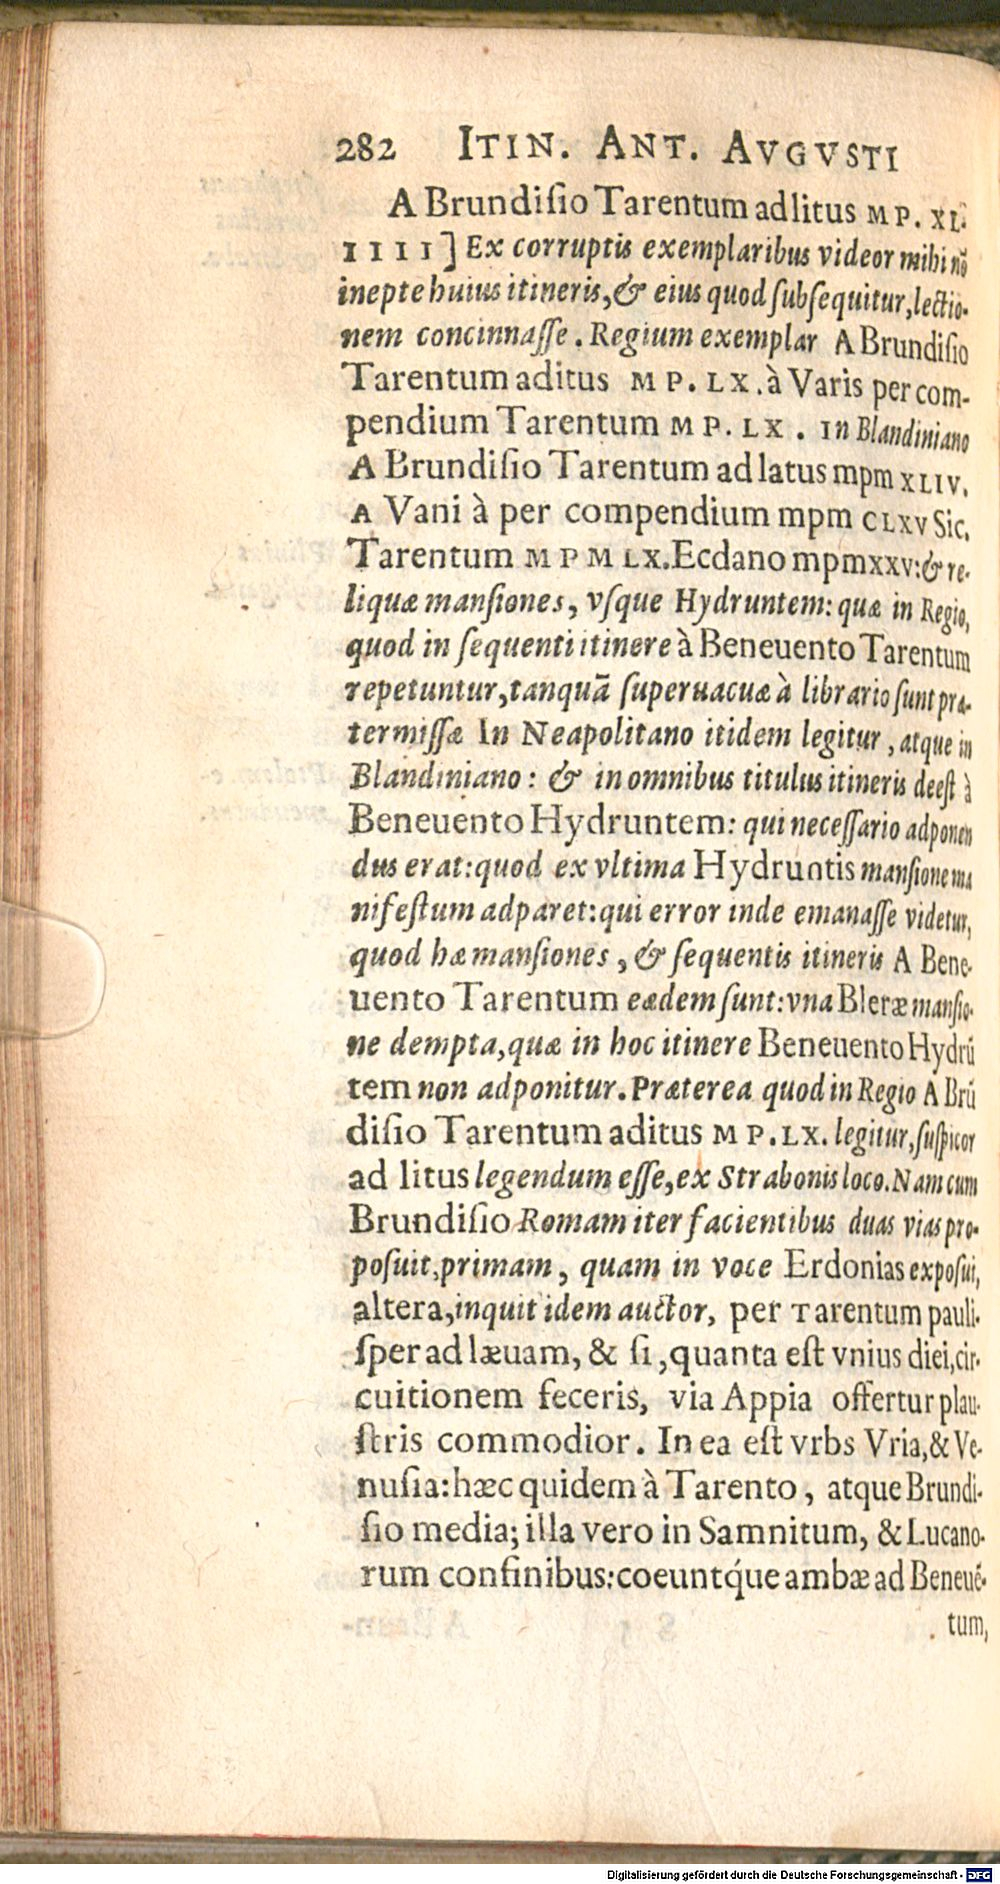 282 ITIN. ANT. AVGVSTI
A Brundiſio Tarentum ad litus MP. XL.
IIII] Ex corruptis exemplaribus videor mihi nō
inepte huius itineris, & eius quod ſubſequitur, lectio-
nem concinnaſſe. Regium exemplar A Brundiſio
Tarentum aditus MP. LX. à Varis per com-
pendium Tarentum MP. LX. In Blandiniano
A Brundiſio Tarentum ad latus mpm XLIV.
A Vani à per compendium mpm CLXV Sic.
Tarentum MPM LX. Ecdano mpmxxv: & re-
liquæ manſiones, vſque Hydruntem: quæ in Regio,
quod in ſequenti itinere à Beneuento Tarentum
repetuntur, tanquā ſuperuacuæ à librario ſunt præ-
termiſſæ In Neapolitano itidem legitur, atque in
Blandiniano: & in omnibus titulus itineris deeſt à
Beneuento Hydruntem: qui neceſſario adponen
dus erat: quod ex vltima Hydruntis manſione ma
nifeſtum adparet: qui error inde emanaſſe videtur,
quod hæ manſiones, & ſequentis itineris A Bene-
uento Tarentum eædem ſunt: vna Bleræ manſio-
ne dempta, quæ in hoc itinere Beneuento Hydrū
tem non adponitur. Præterea quod in Regio A Brū
diſio Tarentum aditus MP. LX. legitur, ſuſpicor
ad litus legendum eſſe, ex Strabonis loco. Nam cum
Brundiſio Romam iter facientibus duas vias pro-
poſuit, primam, quam in voce Erdonias expoſui,
altera, inquit idem auctor, per Tarentum pauli-
ſper ad læuam, & ſi, quanta eſt vnius diei, cir-
cuitionem feceris, via Appia offertur plau-
ſtris commodior. In ea eſt vrbs Vria, & Ve-
nuſia: hæc quidem à Tarento, atque Brundi-
ſio media; illa vero in Samnitum, & Lucano-
rum confinibus: coeuntq́ue ambæ ad Beneuē-
tum,
Digitalisierung gefördert durch die Deutsche Forschungsgemeinschaft - DFG